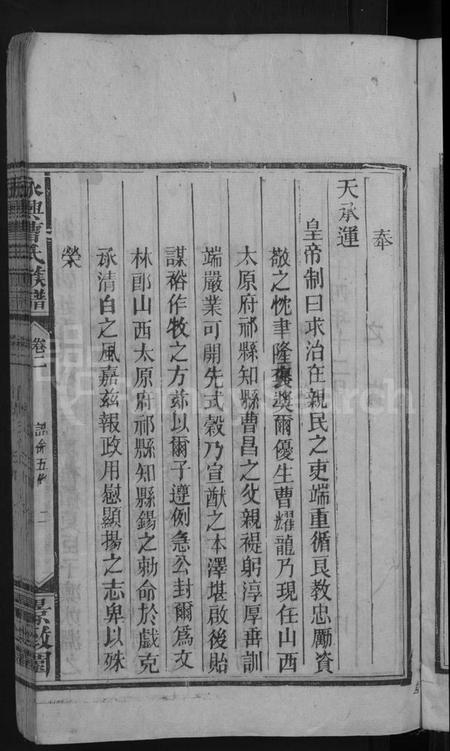 奉
天承運
皇帝制曰求治在親民之吏端重循良教忠勵資
敬之忱聿隆襃奬爾優生曹耀龍乃現任山西
太原府祁縣知縣曹昌之父親褆躬淳厚垂訓
端嚴業可開先式穀乃宣猷之本澤堪啟後貽
謀裕作牧之方玆以爾子遵例急公封爾爲文
林郎山西太原府祁縣知縣錫之勅命於戲克
承清白之風嘉兹報政用慰顯揚之志卑以殊
榮
永興曹氏族譜
卷二
誥命
二